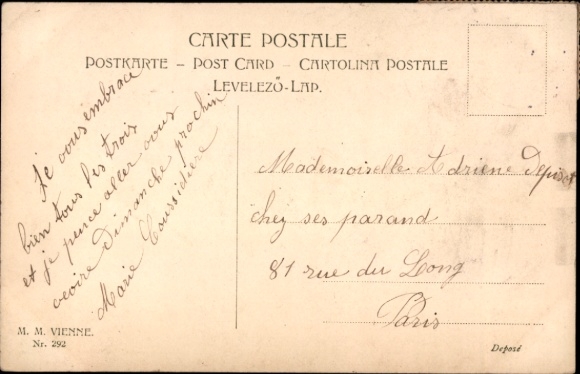 CARTE POSTALE
POSTKARTE – POST CARD – CARTOLINA POSTALE
LEVELEZŐ-LAP.
Je vous embrace
bien tous les trois
et je pence aller vous
veoire Dimanche prochin
Marie Coussidiere
Mademoiselle Adriene Depisot
chez ses parand
81 rue du Long
Paris
M. M. VIENNE.
Nr. 292
Deposé